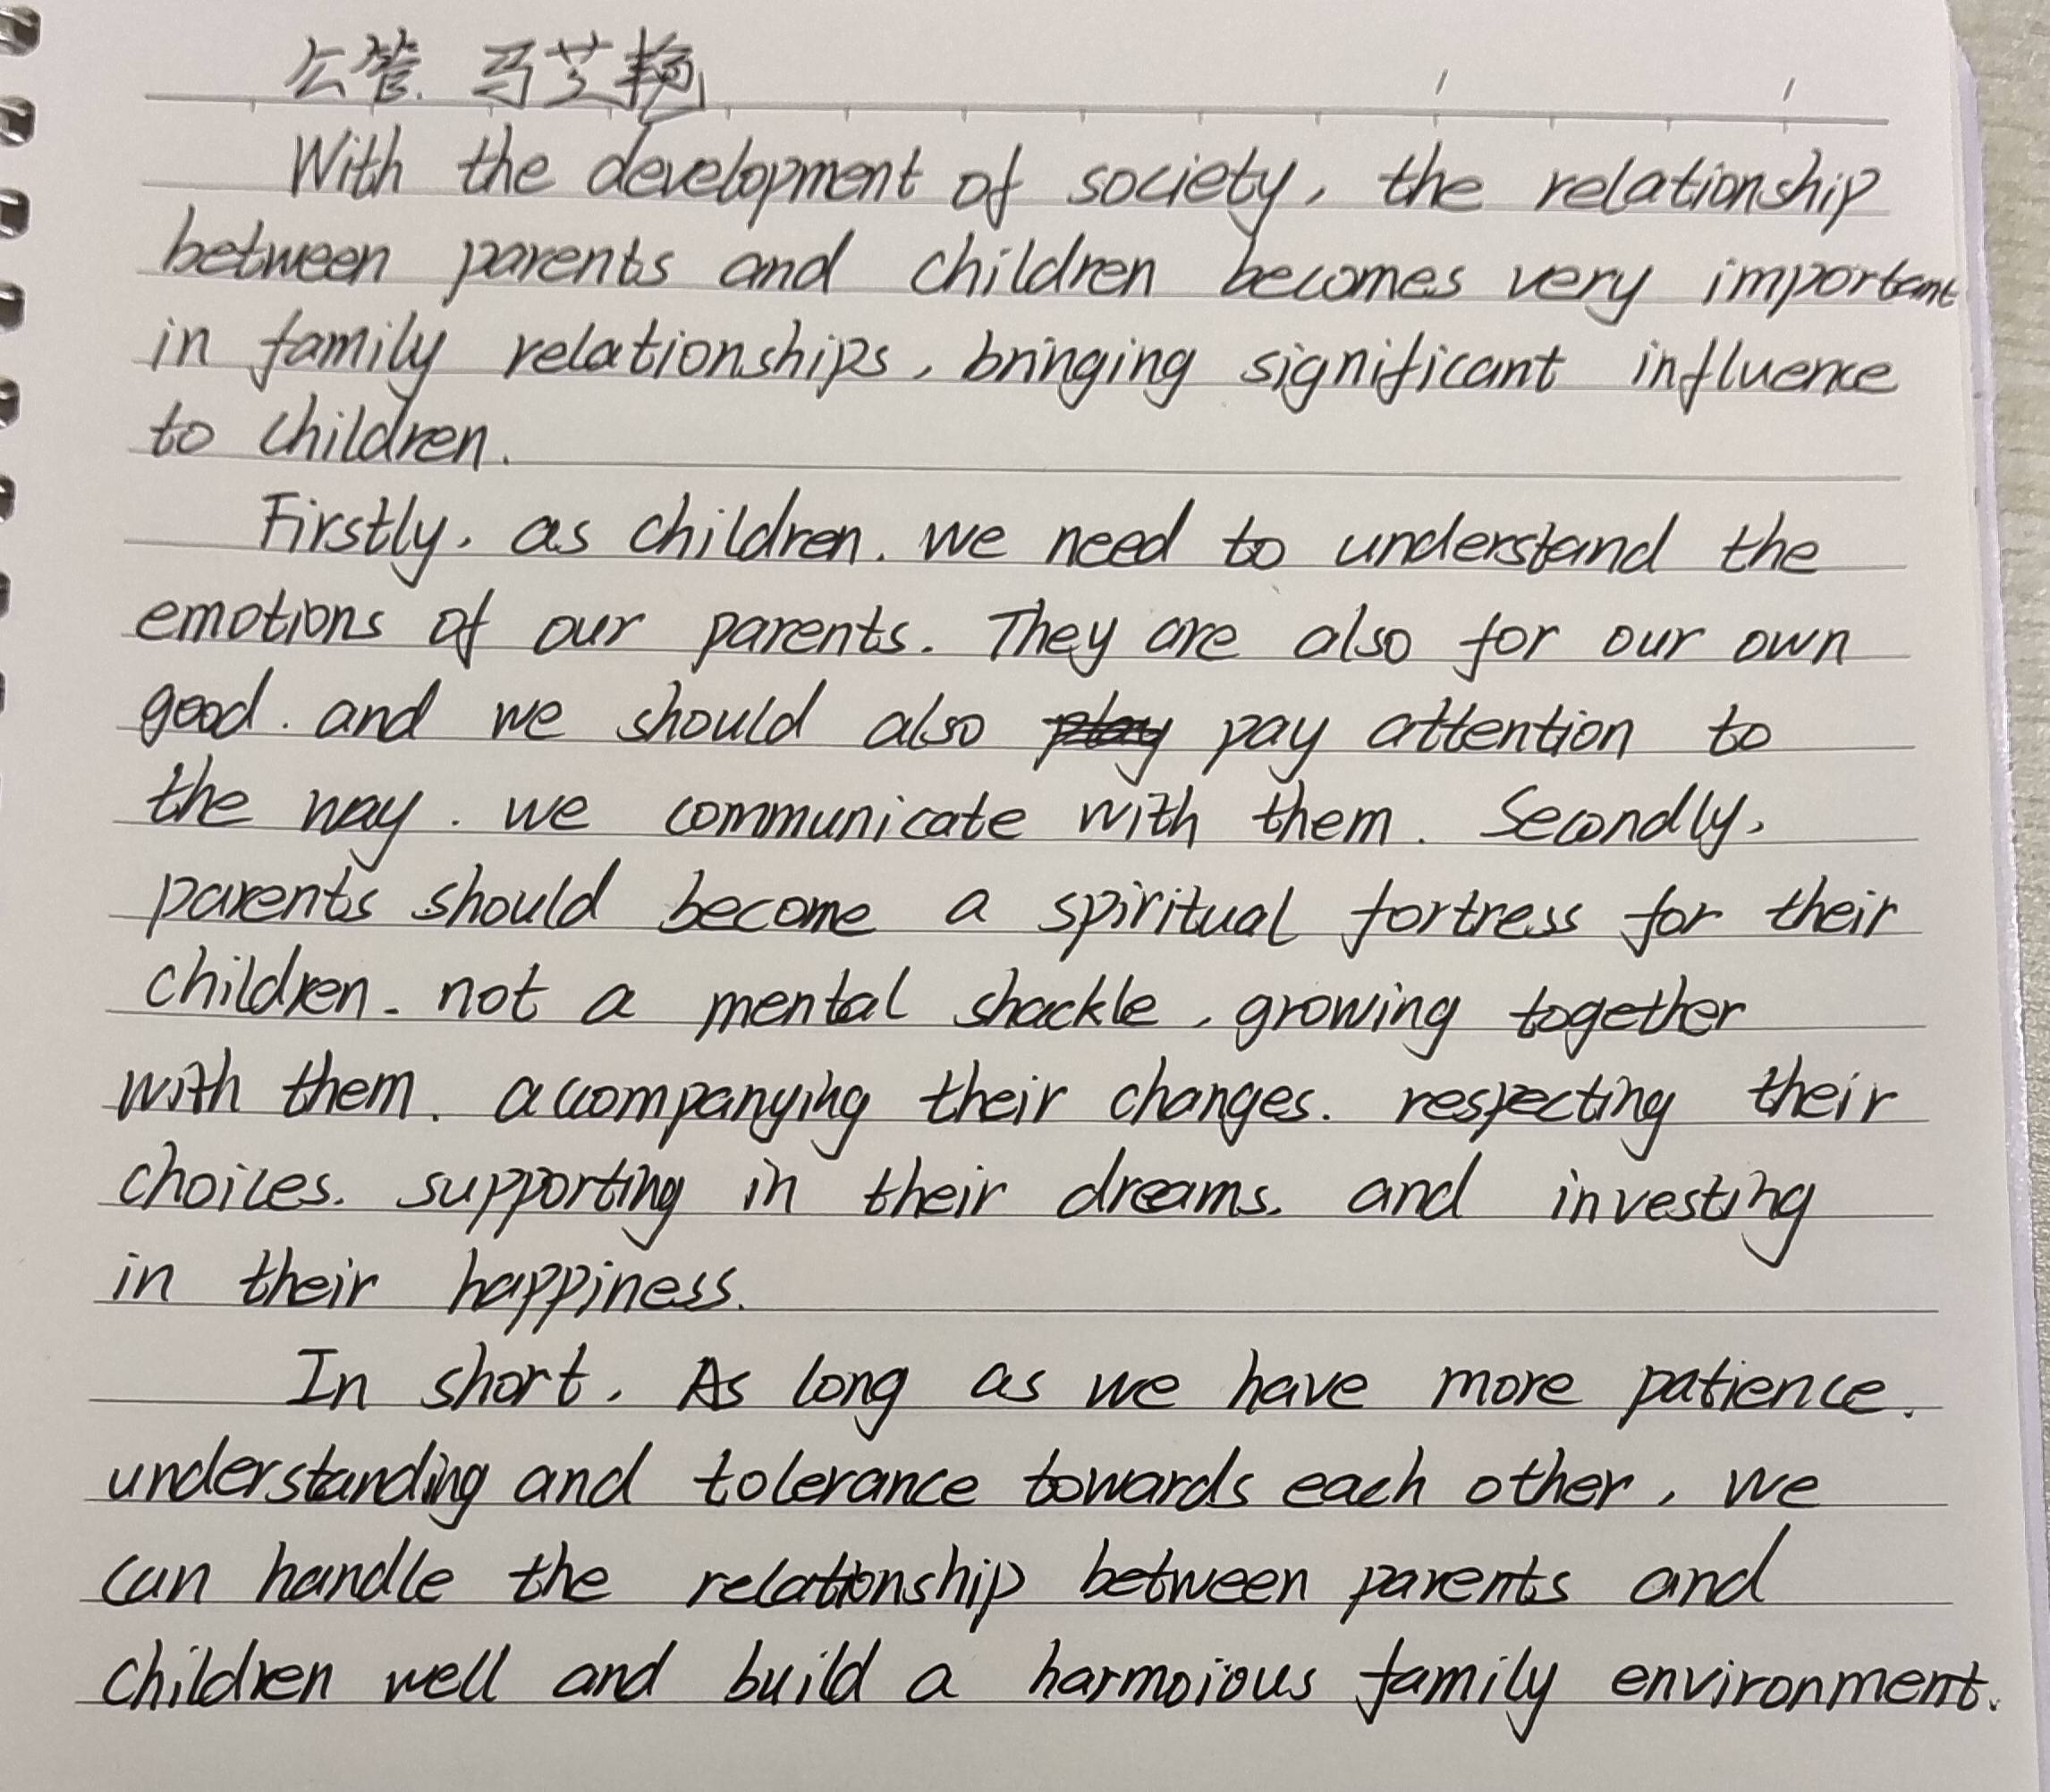 公管. 马艾艳
With the development of society, the relationship
between parents and children becomes very important
in family relationships, bringing significant influence
to children.
Firstly, as children. we need to understand the
emotions of our parents. They are also for our own
good. and we should also play pay attention to
the way. we communicate with them. Secondly,
parents should become a spiritual fortress for their
children. not a mental shackle, growing together
with them. accompanying their changes. respecting their
choices. supporting in their dreams. and investing
in their happiness.
In short, As long as we have more patience.
understanding and tolerance towards each other, we
can handle the relationship between parents and
children well and build a harmoious family environment.